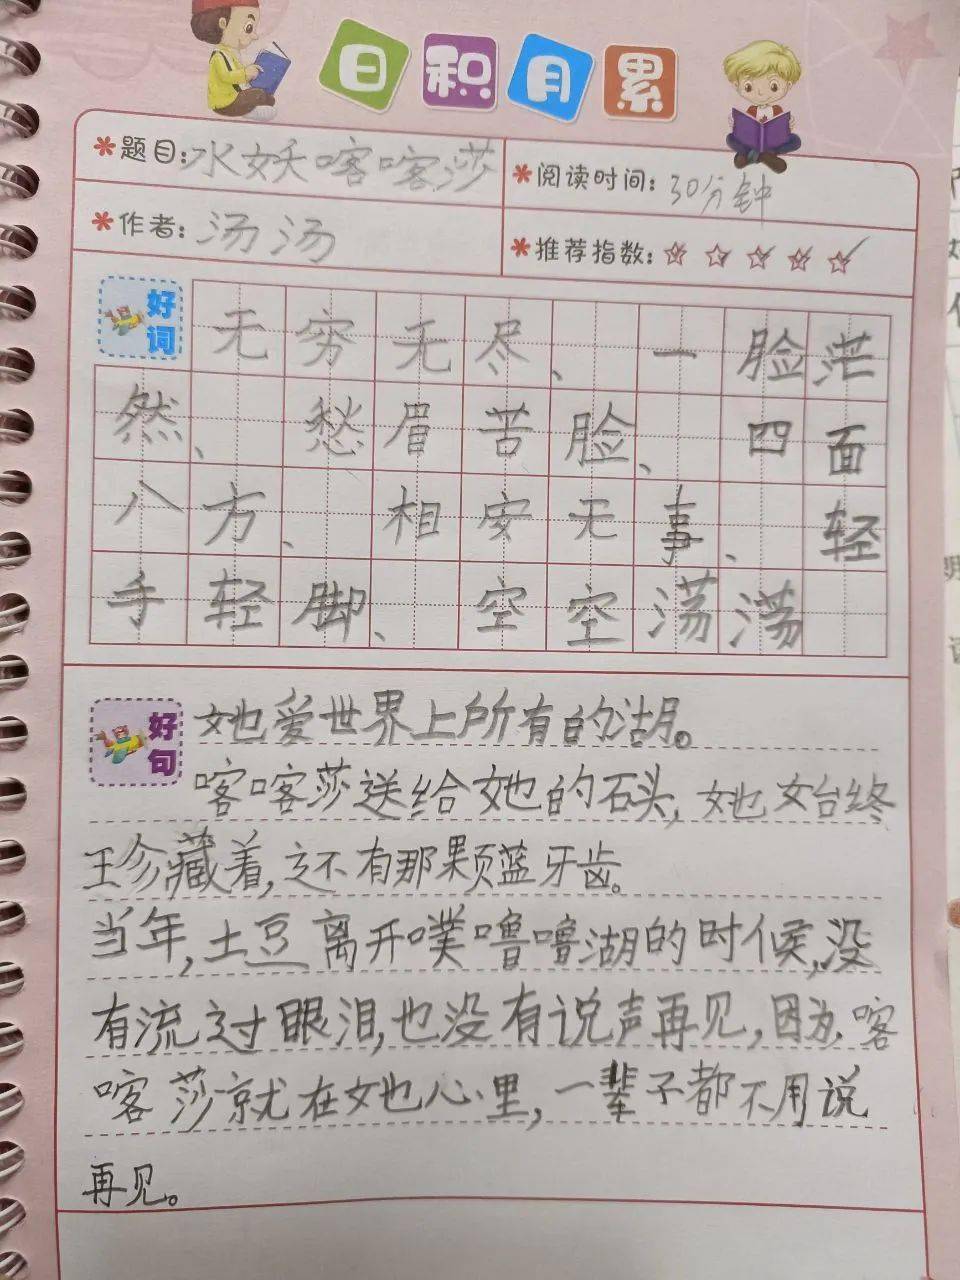 日积月累
题目:水妖喀喀莎
阅读时间:30分钟
作者:汤汤
推荐指数:
好词
无穷无尽、一脸茫
然、愁眉苦脸、四面
八方、相安无事、轻
手轻脚、空空荡荡
好句
她爱世界上所有的湖。
喀喀莎送给她的石头,她始终
珍藏着,还有那颗蓝牙齿。
当年,土豆离开噗噜噜湖的时候,没
有流过眼泪,也没有说声再见,因为喀
喀莎就在她心里,一辈子都不用说
再见。